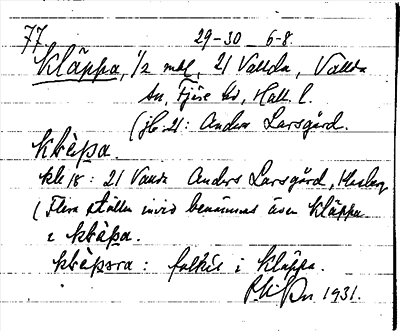 77 29-30 6-8.
Kläppa, 1/2 mtl, 21 Vallda, Vallda
sn, Fjäre hd, Hall. l.
(jb. 21: Anders Larsgård.
klàpa.
kbl 18: 21 Vallda Anders Larsgård,
(Flera ställen invid benämnas även Kläppa
klàpa.
: folket i Kläppa.
1931.